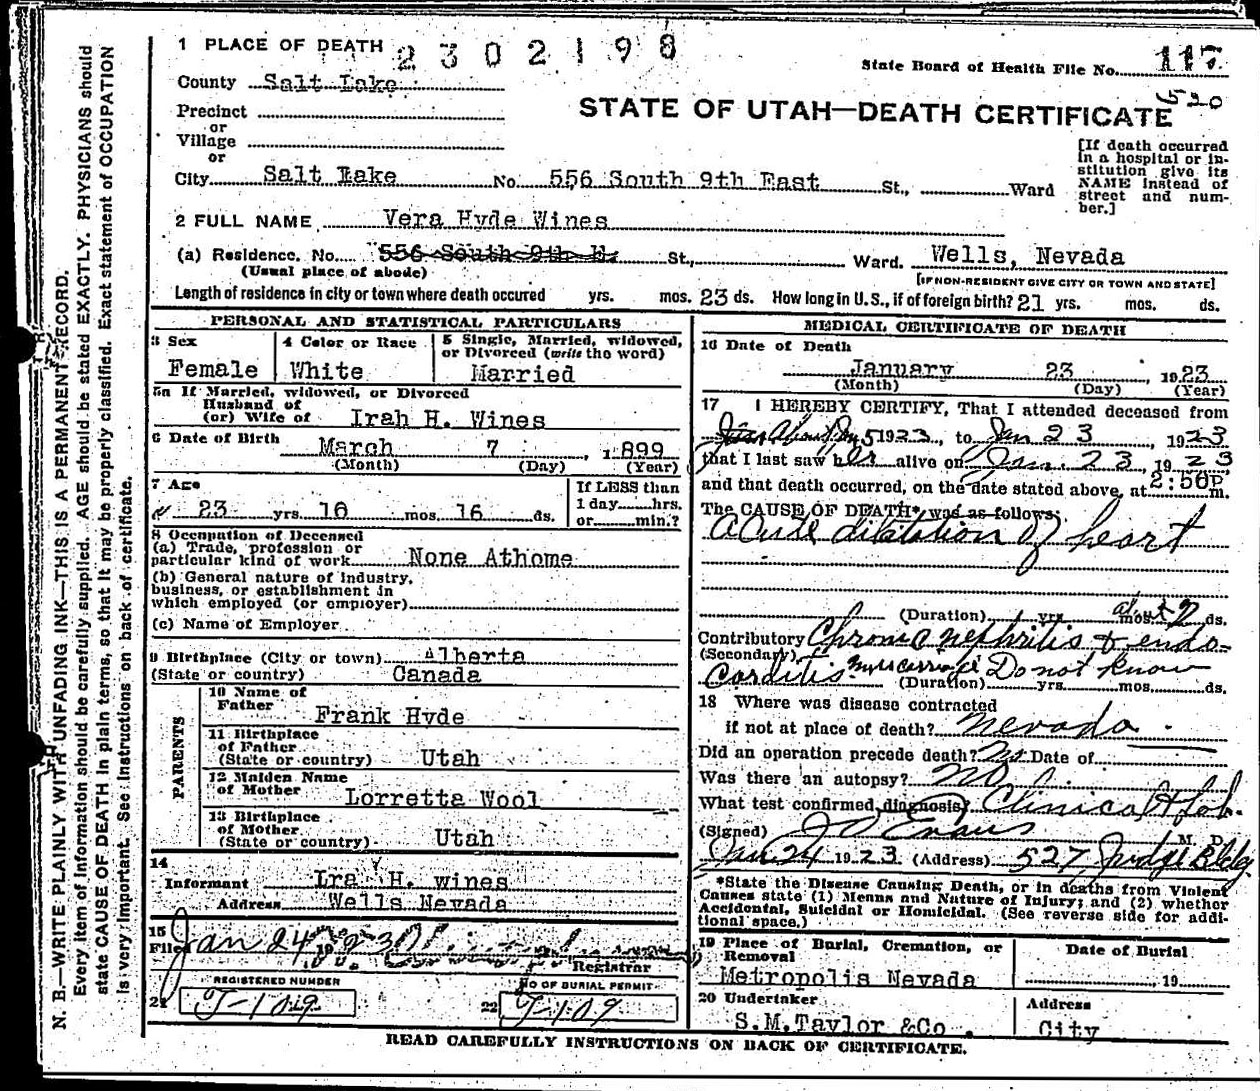 1 PLACE OF DEATH 2302198
State Board of Health File No. 117
County Salt Lake
520
STATE OF UTAH—DEATH CERTIFICATE
Precinct
or
Village
or
City Salt Lake No. 556 South 9th East St., Ward
[If death occurred in a hospital or in-
stitution give its
NAME instead of
street and num-
ber.]
2 FULL NAME Vera Hyde Wines
(a) Residence. No. 556 South 9th E. St., Ward. Wells, Nevada
(Usual place of abode) [IF NON-RESIDENT GIVE CITY OR TOWN AND STATE]
Length of residence in city or town where death occured yrs. mos. 23 ds. How long in U.S., if of foreign birth? 21 yrs. mos. ds.
PERSONAL AND STATISTICAL PARTICULARS
3 Sex 4 Color or Race 5 Single, Married, widowed,
or Divorced (write the word)
Female White Married
5a If Married, widowed, or Divorced
Husband of
(or) Wife of Irah H. Wines
6 Date of Birth March 7, 1899
(Month) (Day) (Year)
7 Age If LESS than
1 day hrs.
23 yrs. 10 mos. 16 ds. or min.?
8 Occupation of Deceased
(a) Trade, profession or
particular kind of work None Athome
(b) General nature of industry,
business, or establishment in
which employed (or employer)
(c) Name of Employer
9 Birthplace (City or town) Alberta
(State or country) Canada
PARENTS
10 Name of
Father Frank Hyde
11 Birthplace
of Father
(State or country) Utah
12 Maiden Name
of Mother Lorretta Wool
13 Birthplace
of Mother
(State or country) Utah
14
Informant Ira H. wines
Address Wells Nevada
15
Filed Jan 24 1923
Registrar
REGISTERED NUMBER NO OF BURIAL PERMIT
21 J-109 22 J-109
MEDICAL CERTIFICATE OF DEATH
16 Date of Death
January 23, 1923
(Month) (Day) (Year)
17 I HEREBY CERTIFY, That I attended deceased from
About Jan 5 1923, to Jan 23, 1923
that I last saw her alive on Jan. 23, 1923
and that death occurred, on the date stated above, at 2:50P m.
The CAUSE OF DEATH* was as follows:
Acute dilatation of heart
(Duration) yrs mos 2 ds.
Contributory Chronic nephritis & endo-
(Secondary)
carditis Miscarriage Do not know
(Duration) yrs. mos. ds.
18 Where was disease contracted
if not at place of death? Nevada
Did an operation precede death? No Date of
Was there an autopsy? No
What test confirmed diagnosis? Clinical & lab.
(Signed) J D Evans M. D.
Jan 24 1923. (Address) 527 Judge Bldg
*State the Disease Causing Death, or in deaths from Violent
Causes state (1) Menns and Nature of Injury; and (2) whether
Accidental, Suicidal or Homicidal. (See reverse side for addi-
tional space.)
19 Place of Burial, Cremation, or
Removal Date of Burial
Metropolis Nevada 19
20 Undertaker Address
S.M.Taylor &Co. City
READ CAREFULLY INSTRUCTIONS ON BACK OF CERTIFICATE.
N. B.—WRITE PLAINLY WITH UNFADING INK—THIS IS A PERMANENT RECORD.
Every item of information should be carefully supplied. AGE should be stated EXACTLY. PHYSICIANS should
state CAUSE OF DEATH in plain terms, so that it may be properly classified. Exact statement of OCCUPATION
is very important. See Instructions on back of certificate.